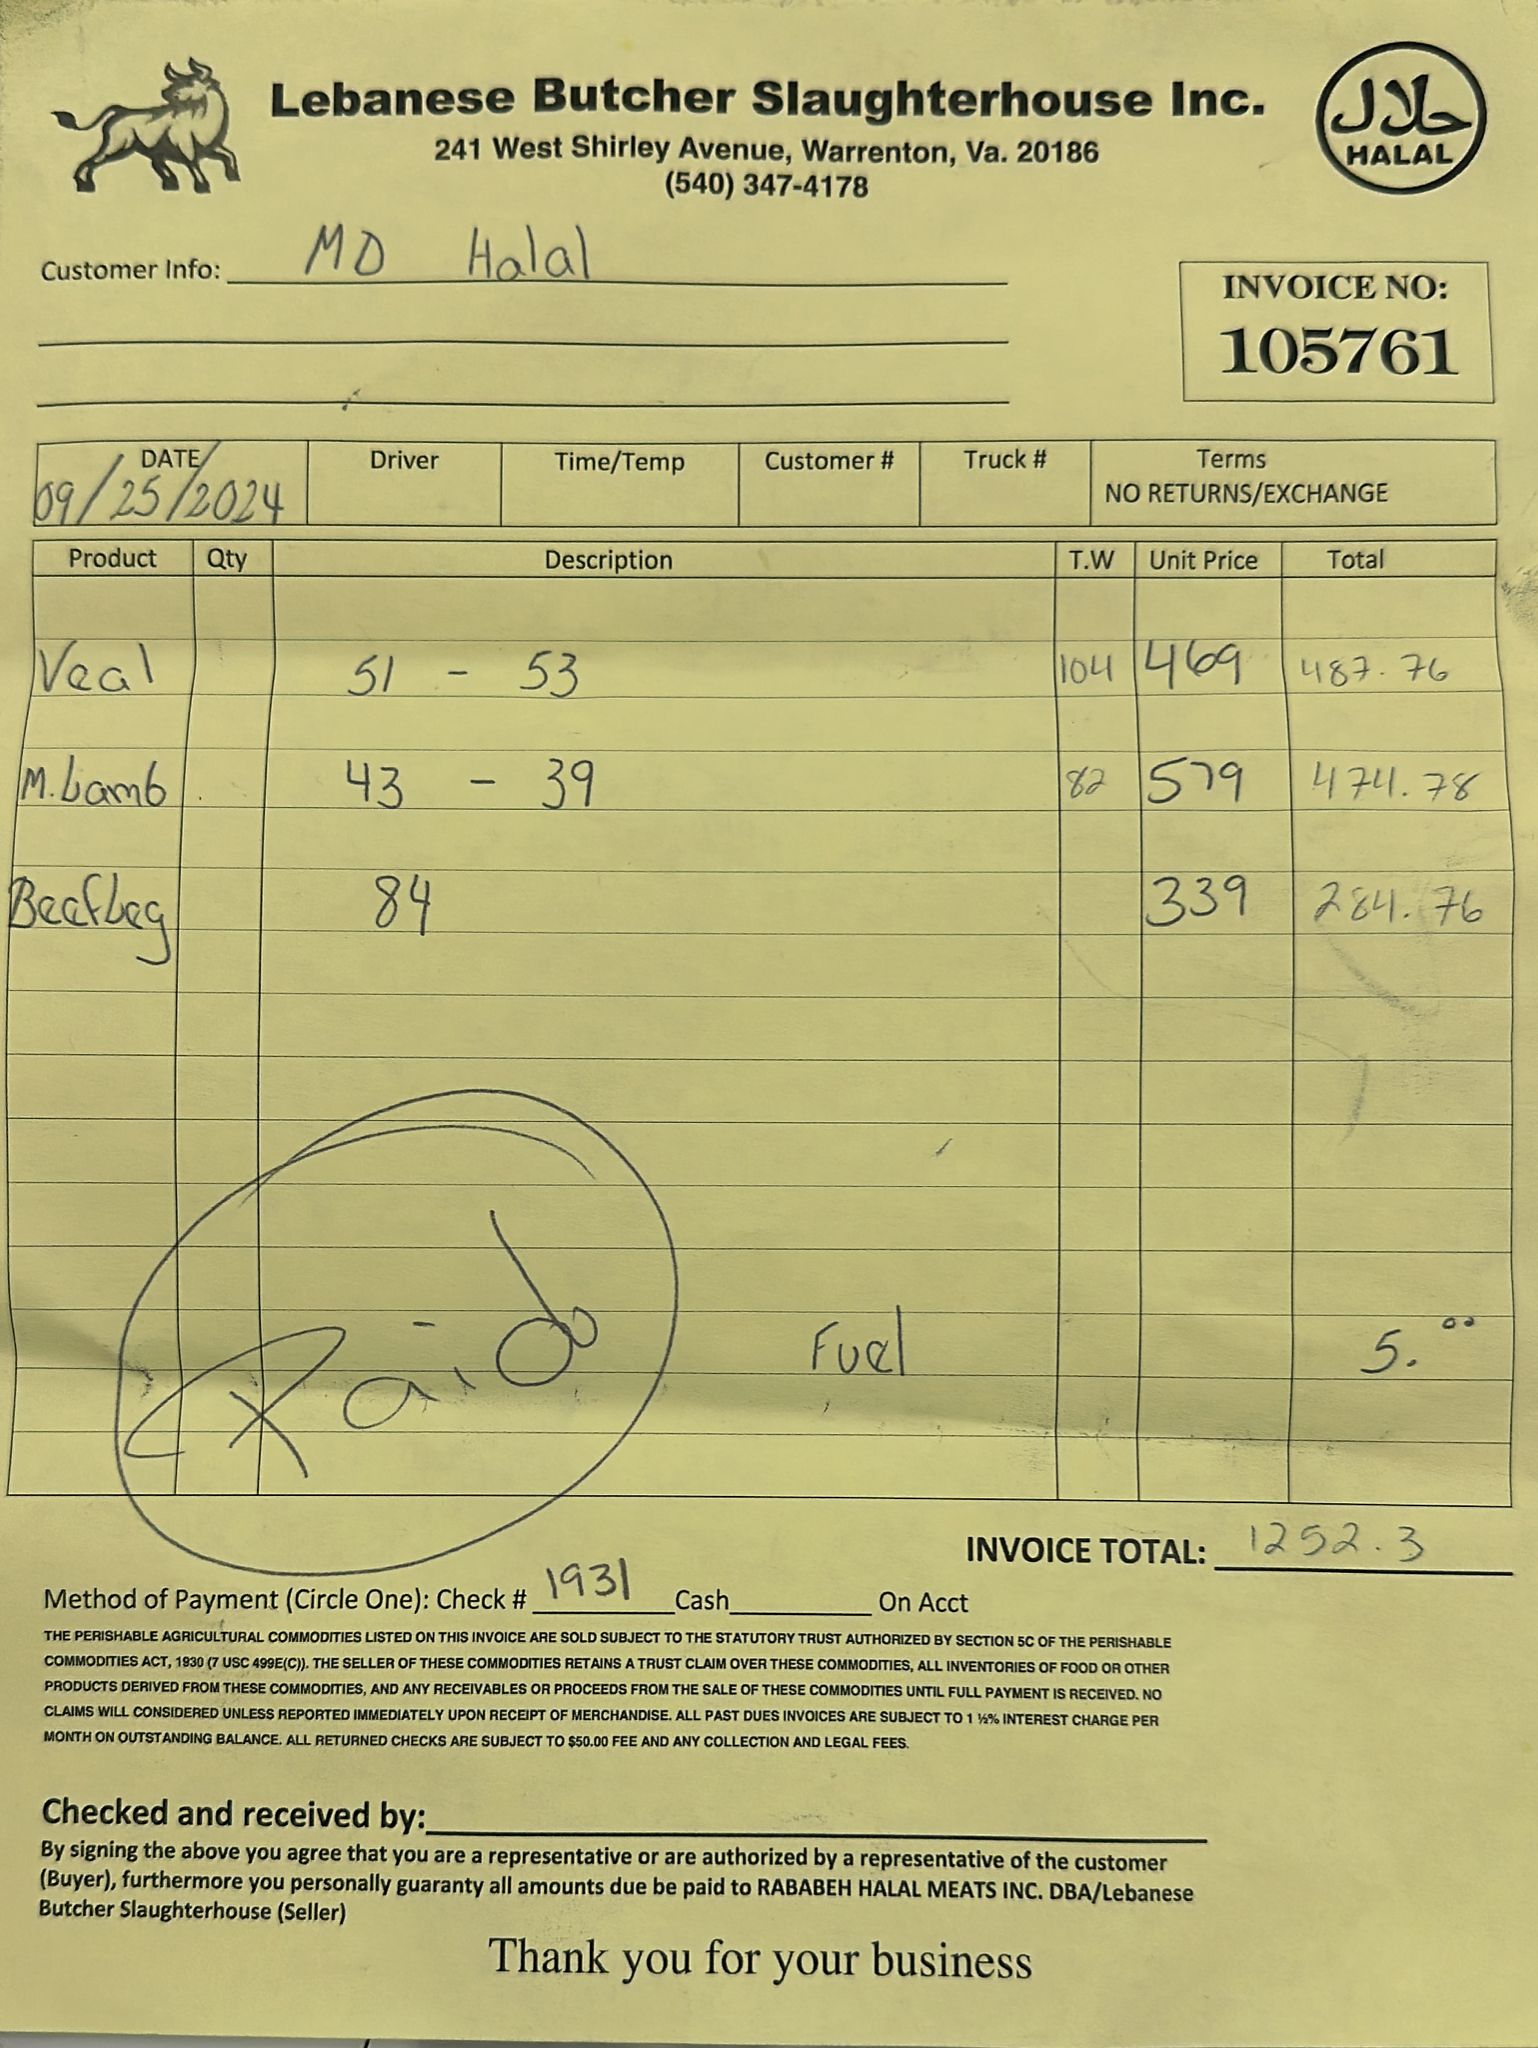 Lebanese Butcher Slaughterhouse Inc.
241 West Shirley Avenue, Warrenton, Va. 20186
(540) 347-4178
حلال
HALAL
Customer Info: MD Halal
INVOICE NO:
105761
DATE Driver Time/Temp Customer # Truck # Terms
09/25/2024 NO RETURNS/EXCHANGE
Product Qty Description T.W Unit Price Total
Veal 51 - 53 104 469 487.76
M.Lamb 43 - 39 82 579 474.78
BeefLeg 84 339 284.76
Paid
Fuel 5.00
INVOICE TOTAL: 1252.3
Method of Payment (Circle One): Check # 1931 Cash On Acct
THE PERISHABLE AGRICULTURAL COMMODITIES LISTED ON THIS INVOICE ARE SOLD SUBJECT TO THE STATUTORY TRUST AUTHORIZED BY SECTION 5C OF THE PERISHABLE
COMMODITIES ACT, 1930 (7 USC 499E(C)). THE SELLER OF THESE COMMODITIES RETAINS A TRUST CLAIM OVER THESE COMMODITIES, ALL INVENTORIES OF FOOD OR OTHER
PRODUCTS DERIVED FROM THESE COMMODITIES, AND ANY RECEIVABLES OR PROCEEDS FROM THE SALE OF THESE COMMODITIES UNTIL FULL PAYMENT IS RECEIVED. NO
CLAIMS WILL CONSIDERED UNLESS REPORTED IMMEDIATELY UPON RECEIPT OF MERCHANDISE. ALL PAST DUES INVOICES ARE SUBJECT TO 1 ½% INTEREST CHARGE PER
MONTH ON OUTSTANDING BALANCE. ALL RETURNED CHECKS ARE SUBJECT TO $50.00 FEE AND ANY COLLECTION AND LEGAL FEES.
Checked and received by:
By signing the above you agree that you are a representative or are authorized by a representative of the customer
(Buyer), furthermore you personally guaranty all amounts due be paid to RABABEH HALAL MEATS INC. DBA/Lebanese
Butcher Slaughterhouse (Seller)
Thank you for your business